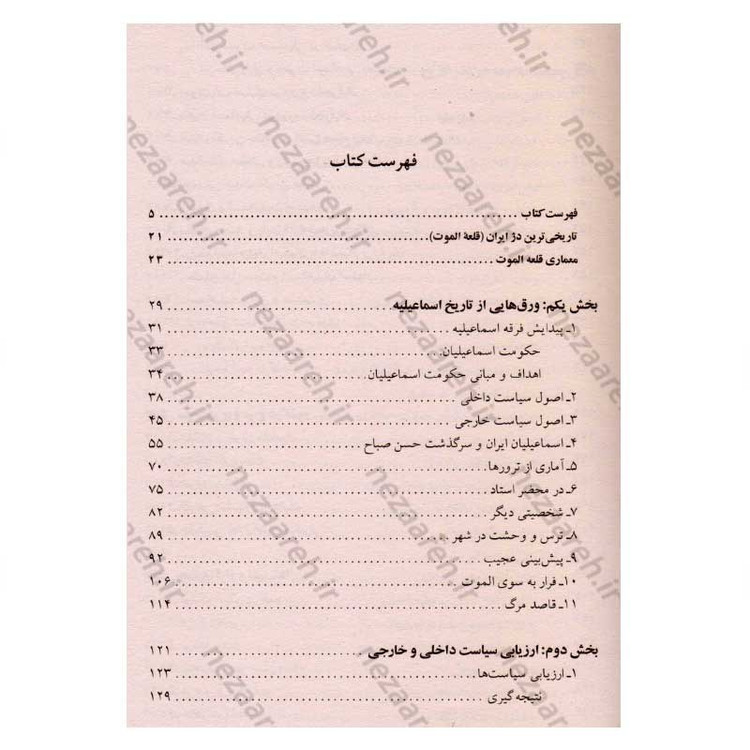 فهرست کتاب
فهرست کتاب ........ ۵
تاریخی‌ترین دژ ایران (قلعهٔ الموت) ........ ۲۱
معماری قلعه الموت ........ ۲۳
بخش یکم: ورق‌هایی از تاریخ اسماعیلیه ........ ۲۹
۱ـ پیدایش فرقه اسماعیلیه ........ ۳۱
حکومت اسماعیلیان ........ ۳۳
اهداف و مبانی حکومت اسماعیلیان ........ ۳۴
۲ـ اصول سیاست داخلی ........ ۳۸
۳ـ اصول سیاست خارجی ........ ۴۵
۴ـ اسماعیلیان ایران و سرگذشت حسن صباح ........ ۵۵
۵ـ آماری از ترورها ........ ۷۰
۶ـ در محضر استاد ........ ۷۵
۷ـ شخصیتی دیگر ........ ۸۲
۸ـ ترس و وحشت در شهر ........ ۸۹
۹ـ پیش‌بینی عجیب ........ ۹۲
۱۰ـ فرار به سوی الموت ........ ۱۰۶
۱۱ـ قاصد مرگ ........ ۱۱۴
بخش دوم: ارزیابی سیاست داخلی و خارجی ........ ۱۲۱
۱ـ ارزیابی سیاست‌ها ........ ۱۲۳
نتیجه‌گیری ........ ۱۲۹
nezaareh.ir